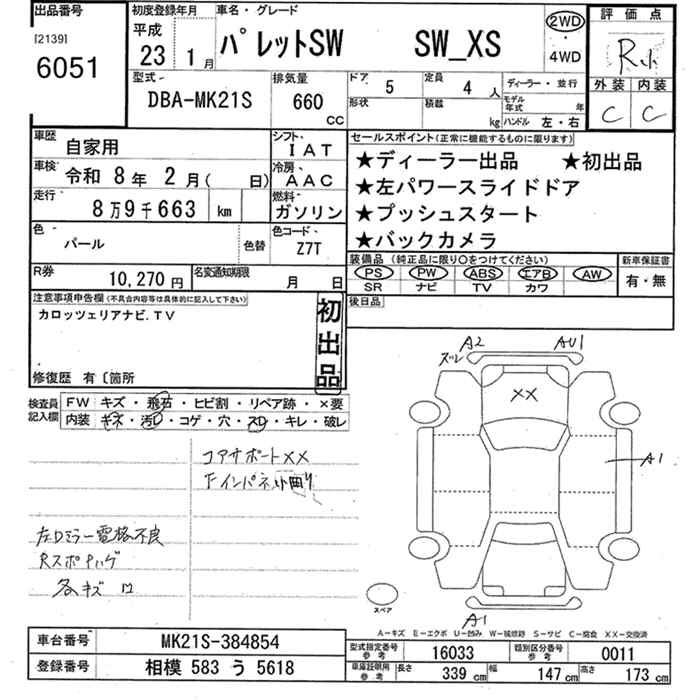 出品番号
[2139]
6051
初度登録年月
平成
23 1月
車名・グレード
パレットSW SW_XS
2WD
・
4WD
評価点
R
外装 内装
C C
型式
DBA-MK21S
排気量
660 CC
ドア 5
定員 4 人
形状
積載 kg
ディーラー・並行
モデル年式 年
ハンドル 左・右
車歴 自家用
シフト IAT
車検 令和 8年 2月( 日)
冷房 AAC
走行 8万9千663 km
燃料 ガソリン
色 パール
色替
色コード Z7T
R券 10,270円
名変通知期限 月 日
セールスポイント(正常に機能するものに限ります)
★ディーラー出品 ★初出品
★左パワースライドドア
★プッシュスタート
★バックカメラ
装備品 (純正品に限り○をつけてください)
新車保証書
PS PW ABS エアB AW
SR ナビ TV カワ
有・無
後日品
注意事項申告欄(不具合内容等は具体的に記入して下さい)
カロッツェリアナビ.TV
初出品
修復歴 有〔箇所
検査員記入欄
FW キズ・飛石・ヒビ割・リペア跡・×要
内装 キズ・汚レ・コゲ・穴・スレ・キレ・破レ
コアサポートXX
左Dミラー電格不良
各キズ
A2
AU1
ズレ
XX
A1
A1
スペア
A-キズ E-エクボ U-凹み W-補修跡 S-サビ C-腐食 XX-交換済
車台番号 MK21S-384854
登録番号 相模 583 う 5618
型式指定番号 参考 16033
類別区分番号 参考 0011
車庫証明用 参考 長さ 339 cm 幅 147 cm 高さ 173 cm